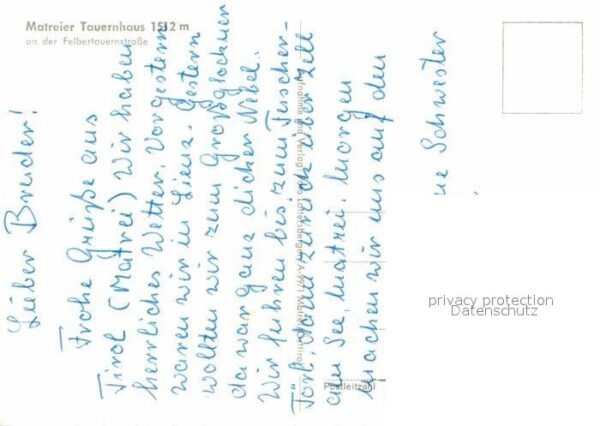 Matreier Tauernhaus 1512 m
an der Felbertauernstraße
Lieber Bruder!
Frohe Grüße aus
Tirol (Matrei) Wir haben
herrliches Wetter. Vorgestern
waren wir in Lienz. Gestern
wollten wir zum Großglockner
da war ganz dicker Nebel.
Wir fuhren bis zum Fuscher-
Törl, dann zurück über Zell
am See, Matrei. Morgen
machen wir uns auf den
ne Schwester
Aufnahme und Verlag
Postleitzahl
privacy protection
Datenschutz